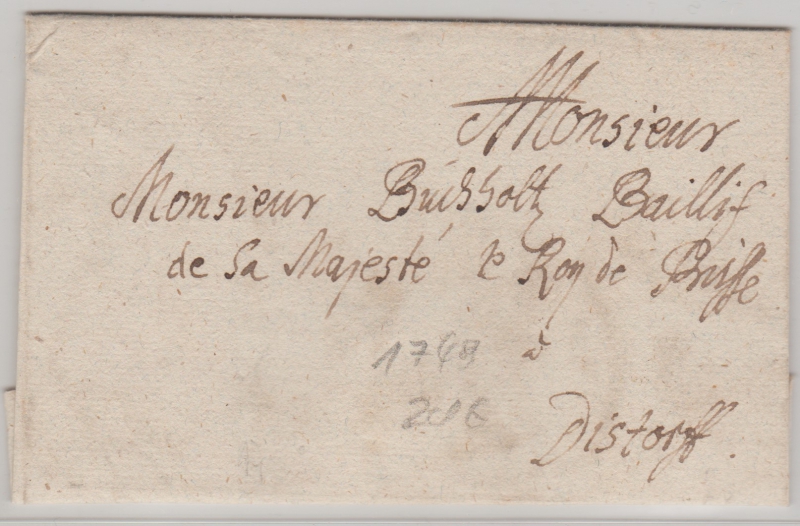 Monsieur
Monsieur Buchholtz Baillif
de Sa Majesté le Roy de Prusse
à
Distorff.
1748
20€